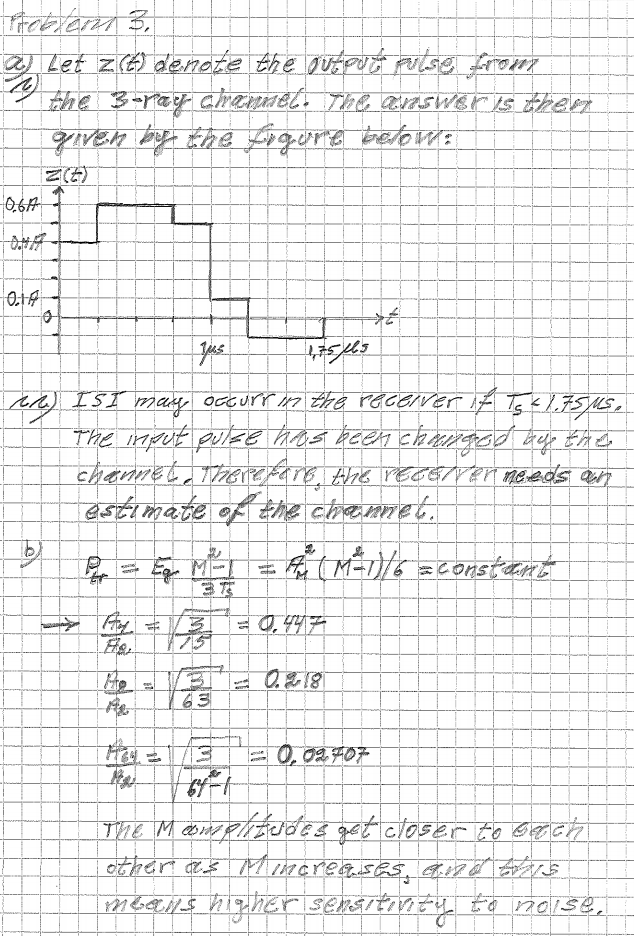 Problem 3.
a) Let z(t) denote the output pulse from
i) the 3-ray channel. The answer is then
given by the figure below:
z(t)
0.6A
0.4A
0.1A
0
t
1μs 1,75 μs
ii) ISI may occurr in the receiver if Ts < 1.75μs.
The input pulse has been changed by the
channel. Therefore, the receiver needs an
estimate of the channel.
b) P_tr = E_g (M²-1)/(3Ts) = A_M² (M²-1)/6 = constant
→ A_4/A_2 = √(3/15) = 0.447
A_8/A_2 = √(3/63) = 0.218
A_64/A_2 = √(3/(64²-1)) = 0.02707
The M amplitudes get closer to each
other as M increases, and this
means higher sensitivity to noise.